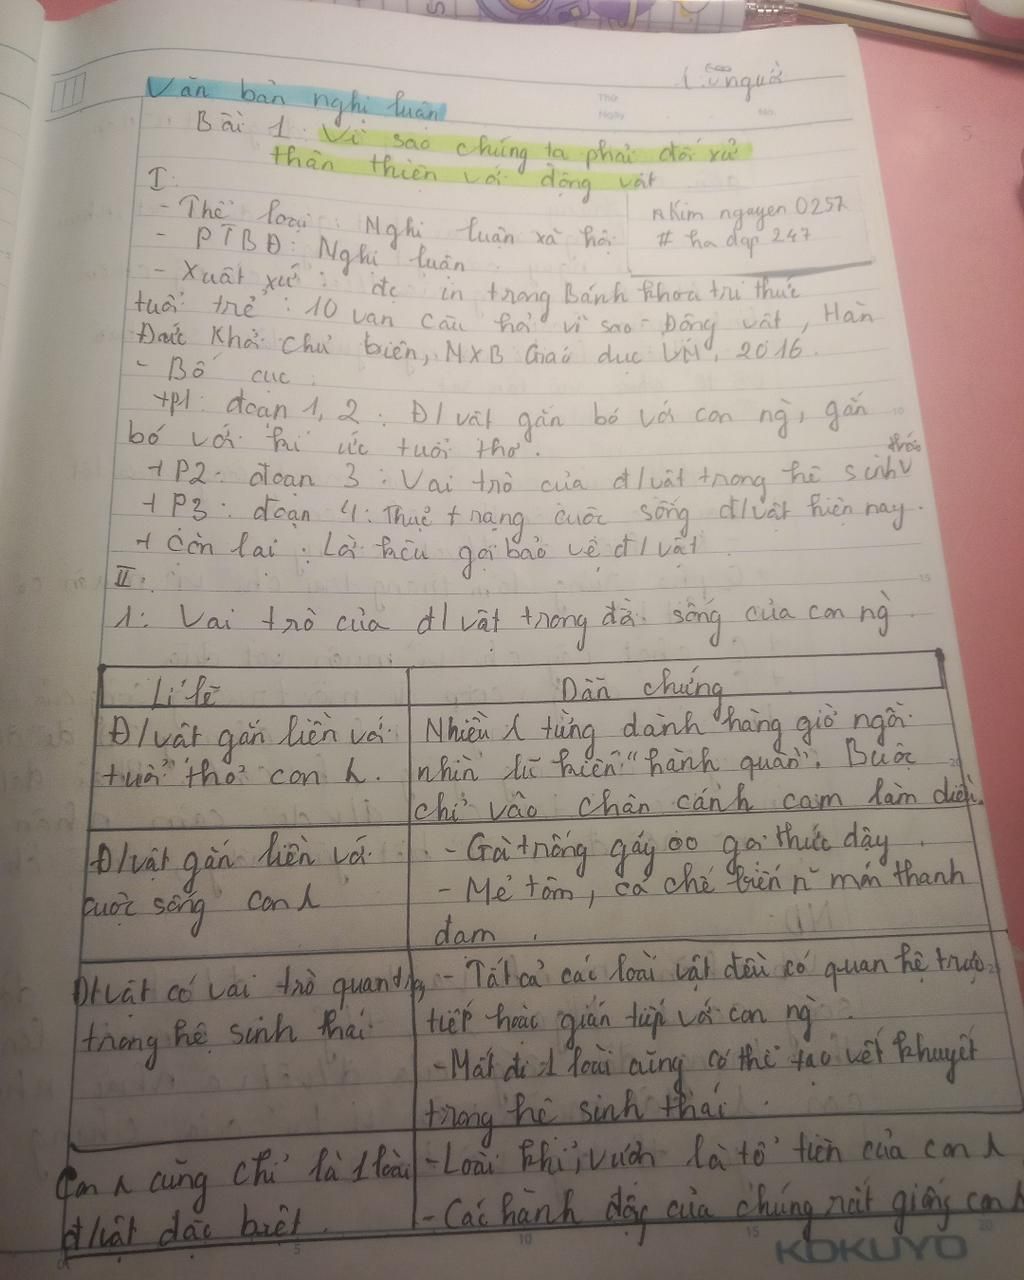 Văn bản nghị luận
Bài 1: Vì sao chúng ta phải đối xử
thân thiện với động vật
Thứ
Ngày
No.
I:
- Thể loại: Nghị luận xã hội
- PTBĐ: Nghị luận
nkim nguyen 0257
# ha dap 247
- Xuất xứ: đc in trong Bánh khoa tri thức
tuổi trẻ: 10 vạn câu hỏi vì sao - Động vật, Hàn
Đức Khải chủ biên, NXB Giáo dục VN, 2016.
- Bố cục:
+ p1: đoạn 1, 2: Đ/vật gắn bó với con ng`, gắn
bó với kí ức tuổi thơ.
+ P2: đoạn 3: Vai trò của đ/vật trong hệ sinh
+ P3: đoạn 4: Thực trạng cuộc sống đ/vật hiện nay.
+ Còn lại: Lời kêu gọi bảo vệ đ/vật
II:
1: Vai trò của đ/vật trong đời sống của con ng`
Lí lẽ
Dẫn chứng
Đ/vật gắn liền với
tuổi thơ con λ.
Nhiều λ từng dành hàng giờ ngồi
nhìn lũ kiến "hành quân". Buộc
chỉ vào chân cánh cam làm diều.
Đ/vật gắn liền với
cuộc sống con λ
- Gà trống gáy oo gọi thức dậy
- Mẻ tôm, cá chế biến n~ món thanh
đạm.
Đ/vật có vai trò quan trọng
trong hệ sinh thái
- Tất cả các loài vật đều có quan hệ trực
tiếp hoặc gián tiếp với con ng`
- Mất đi 1 loài cũng có thể tạo vết khuyết
trong hệ sinh thái.
Con λ cũng chỉ là 1 loài
đ/vật đặc biệt.
- Loài khỉ, vượn là tổ tiên của con λ
- Các hành động của chúng rất giống con λ
KOKUYO